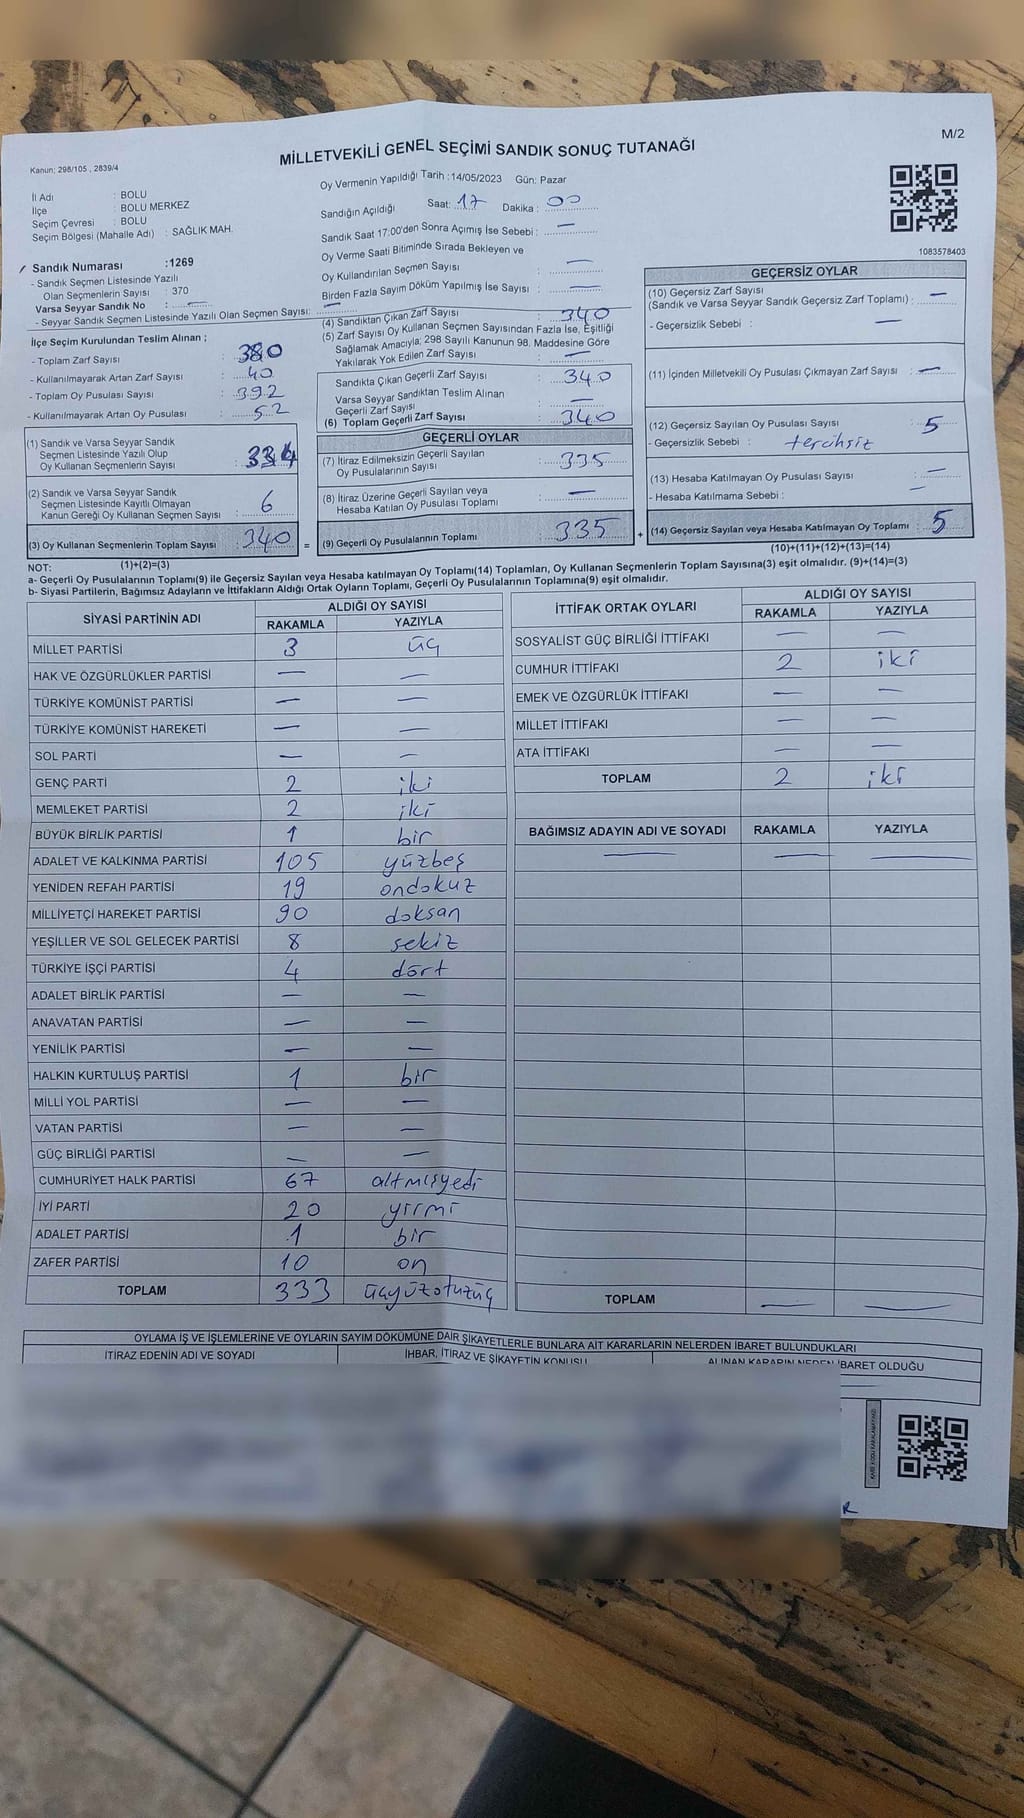 M/2
Kanun; 298/105 , 2839/4
MİLLETVEKİLİ GENEL SEÇİMİ SANDIK SONUÇ TUTANAĞI
İl Adı : BOLU
İlçe : BOLU MERKEZ
Seçim Çevresi : BOLU
Seçim Bölgesi (Mahalle Adı) : SAĞLIK MAH.
Oy Vermenin Yapıldığı Tarih :14/05/2023 Gün: Pazar
Sandığın Açıldığı Saat: 17 Dakika : 00
Sandık Saat 17:00'den Sonra Açımış İse Sebebi : —
Oy Verme Saati Bitiminde Sırada Bekleyen ve
Oy Kullandırılan Seçmen Sayısı : —
Birden Fazla Sayım Döküm Yapılmış İse Sayısı : —
1083578403
Sandık Numarası :1269
- Sandık Seçmen Listesinde Yazılı
Olan Seçmenlerin Sayısı : 370
Varsa Seyyar Sandık No : —
- Seyyar Sandık Seçmen Listesinde Yazılı Olan Seçmen Sayısı: —
İlçe Seçim Kurulundan Teslim Alınan ;
- Toplam Zarf Sayısı : 380
- Kullanılmayarak Artan Zarf Sayısı : 40
- Toplam Oy Pusulası Sayısı : 392
- Kullanılmayarak Artan Oy Pusulası : 52
(1) Sandık ve Varsa Seyyar Sandık
Seçmen Listesinde Yazılı Olup
Oy Kullanan Seçmenlerin Sayısı : 334
(2) Sandık ve Varsa Seyyar Sandık
Seçmen Listesinde Kayıtlı Olmayan
Kanun Gereği Oy Kullanan Seçmen Sayısı : 6
(3) Oy Kullanan Seçmenlerin Toplam Sayısı : 340
(1)+(2)=(3)
(4) Sandıktan Çıkan Zarf Sayısı : 340
(5) Zarf Sayısı Oy Kullanan Seçmen Sayısından Fazla İse, Eşitliği
Sağlamak Amacıyla; 298 Sayılı Kanunun 98. Maddesine Göre
Yakılarak Yok Edilen Zarf Sayısı : —
Sandıkta Çıkan Geçerli Zarf Sayısı : 340
Varsa Seyyar Sandıktan Teslim Alınan
Geçerli Zarf Sayısı : —
(6) Toplam Geçerli Zarf Sayısı : 340
GEÇERLİ OYLAR
(7) İtiraz Edilmeksizin Geçerli Sayılan
Oy Pusulalarının Sayısı : 335
(8) İtiraz Üzerine Geçerli Sayılan veya
Hesaba Katılan Oy Pusulası Toplamı : —
= (9) Geçerli Oy Pusulalarının Toplamı : 335
GEÇERSİZ OYLAR
(10) Geçersiz Zarf Sayısı
(Sandık ve Varsa Seyyar Sandık Geçersiz Zarf Toplamı) : —
- Geçersizlik Sebebi : —
(11) İçinden Milletvekili Oy Pusulası Çıkmayan Zarf Sayısı : —
(12) Geçersiz Sayılan Oy Pusulası Sayısı : 5
- Geçersizlik Sebebi : tercihsiz
(13) Hesaba Katılmayan Oy Pusulası Sayısı : —
- Hesaba Katılmama Sebebi : —
+ (14) Geçersiz Sayılan veya Hesaba Katılmayan Oy Toplamı : 5
(10)+(11)+(12)+(13)=(14)
NOT:
a- Geçerli Oy Pusulalarının Toplamı(9) ile Geçersiz Sayılan veya Hesaba katılmayan Oy Toplamı(14) Toplamları, Oy Kullanan Seçmenlerin Toplam Sayısına(3) eşit olmalıdır. (9)+(14)=(3)
b- Siyasi Partilerin, Bağımsız Adayların ve İttifakların Aldığı Ortak Oyların Toplamı, Geçerli Oy Pusulalarının Toplamına(9) eşit olmalıdır.
SİYASİ PARTİNİN ADI ALDIĞI OY SAYISI
RAKAMLA YAZIYLA
MİLLET PARTİSİ 3 üç
HAK VE ÖZGÜRLÜKLER PARTİSİ — —
TÜRKİYE KOMÜNİST PARTİSİ — —
TÜRKİYE KOMÜNİST HAREKETİ — —
SOL PARTİ — —
GENÇ PARTİ 2 iki
MEMLEKET PARTİSİ 2 iki
BÜYÜK BİRLİK PARTİSİ 1 bir
ADALET VE KALKINMA PARTİSİ 105 yüzbeş
YENİDEN REFAH PARTİSİ 19 ondokuz
MİLLİYETÇİ HAREKET PARTİSİ 90 doksan
YEŞİLLER VE SOL GELECEK PARTİSİ 8 sekiz
TÜRKİYE İŞÇİ PARTİSİ 4 dört
ADALET BİRLİK PARTİSİ — —
ANAVATAN PARTİSİ — —
YENİLİK PARTİSİ — —
HALKIN KURTULUŞ PARTİSİ 1 bir
MİLLİ YOL PARTİSİ — —
VATAN PARTİSİ — —
GÜÇ BİRLİĞİ PARTİSİ — —
CUMHURİYET HALK PARTİSİ 67 altmışyedi
İYİ PARTİ 20 yirmi
ADALET PARTİSİ 1 bir
ZAFER PARTİSİ 10 on
TOPLAM 333 üçyüzotuzüç
İTTİFAK ORTAK OYLARI ALDIĞI OY SAYISI
RAKAMLA YAZIYLA
SOSYALİST GÜÇ BİRLİĞİ İTTİFAKI — —
CUMHUR İTTİFAKI 2 iki
EMEK VE ÖZGÜRLÜK İTTİFAKI — —
MİLLET İTTİFAKI — —
ATA İTTİFAKI — —
TOPLAM 2 iki
BAĞIMSIZ ADAYIN ADI VE SOYADI RAKAMLA YAZIYLA
— — —
TOPLAM — —
OYLAMA İŞ VE İŞLEMLERİNE VE OYLARIN SAYIM DÖKÜMÜNE DAİR ŞİKAYETLERLE BUNLARA AİT KARARLARIN NELERDEN İBARET BULUNDUKLARI
İTİRAZ EDENİN ADI VE SOYADI İHBAR, İTİRAZ VE ŞİKAYETİN KONUSU ALINAN KARARIN NEDEN İBARET OLDUĞU